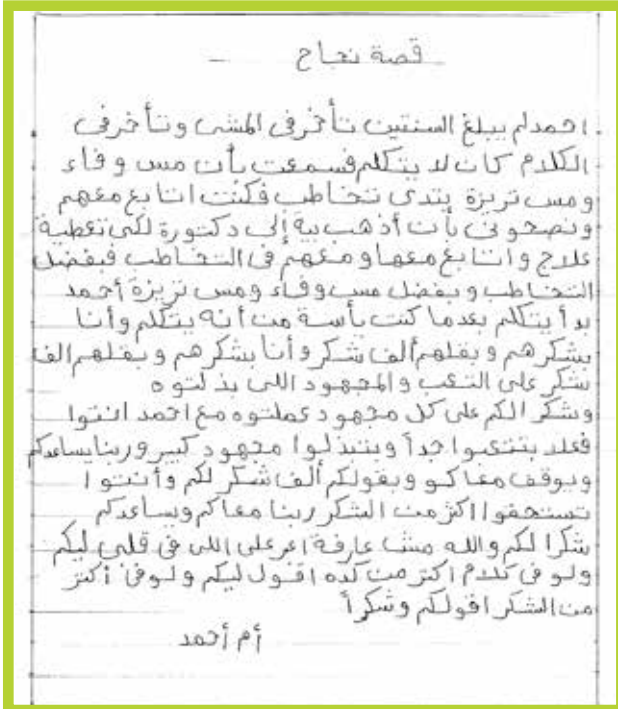 قصة نجاح
احمد لم يبلغ السنتين تأخر فى المشى وتأخر فى
الكلام كان لا يتكلم فسمعت بأن مس وفاء
ومس تريزة بتدى تخاطب فكنت اتابع معهم
ونصحونى بأن أذهب بية إلى دكتورة لكى تعطية
علاج واتابع معها ومعهم فى التخاطب فبفضل
التخاطب وبفضل مس وفاء ومس تريزة أحمد
بدأ يتكلم بعدما كنت يأسة من أنه يتكلم وأنا
بشكرهم وبقلهم ألف شكر وأنا بشكرهم وبقلهم الف
شكر على التعب والمجهود اللى بذلتوه
وشكر الكم على كل مجهود عملتوه مع احمد انتوا
فعلا بتتعبوا جداً وبتبذلوا مجهود كبير وربنا يساعدكم
ويوقف معاكو وبقولكم ألف شكر لكم وأنتوا
تستحقوا اكتر من الشكر ربنا معاكم ويساعدكم
شكرا لكم والله مش عارفة اعبر على اللى فى قلبى ليكم
ولو فى كلام اكتر من كده اقول ليكم ولو فى أكتر
من الشكر اقولكم وشكراً
أم أحمد